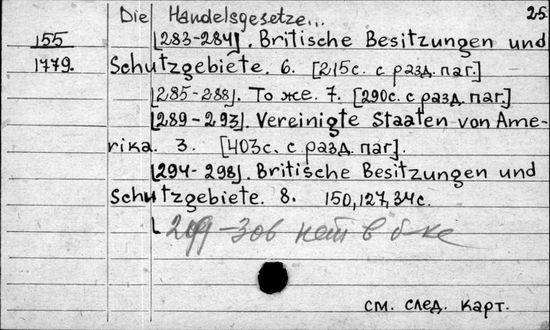 Die Handelsgesetze... 25.
155 [283-284]. Britische Besitzungen und
1779. Schutzgebiete. 6. [215с. с разд. паг.]
[285-288]. То же. 7. [290с. с разд. паг.]
[289-293]. Vereinigte Staaten von Ame-
rika. 3. [403с. с разд. паг].
[294-298]. Britische Besitzungen und
Schutzgebiete. 8. 150,127,34с.
[299-306 нет в б-ке
см. след. карт.